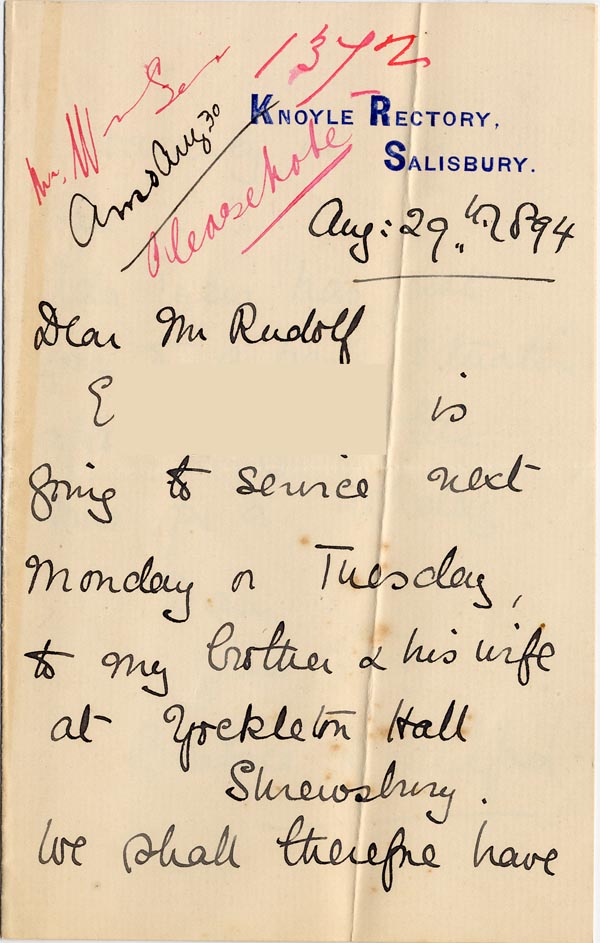 1372
Mr. W
Ansd Aug 30
Please note
KNOYLE RECTORY,
SALISBURY.
Aug: 29th 1894
Dear Mr Rudolf
E is
going to service next
Monday or Tuesday,
to my brother & his wife
at Yockleton Hall
Shrewsbury.
We shall therefore have